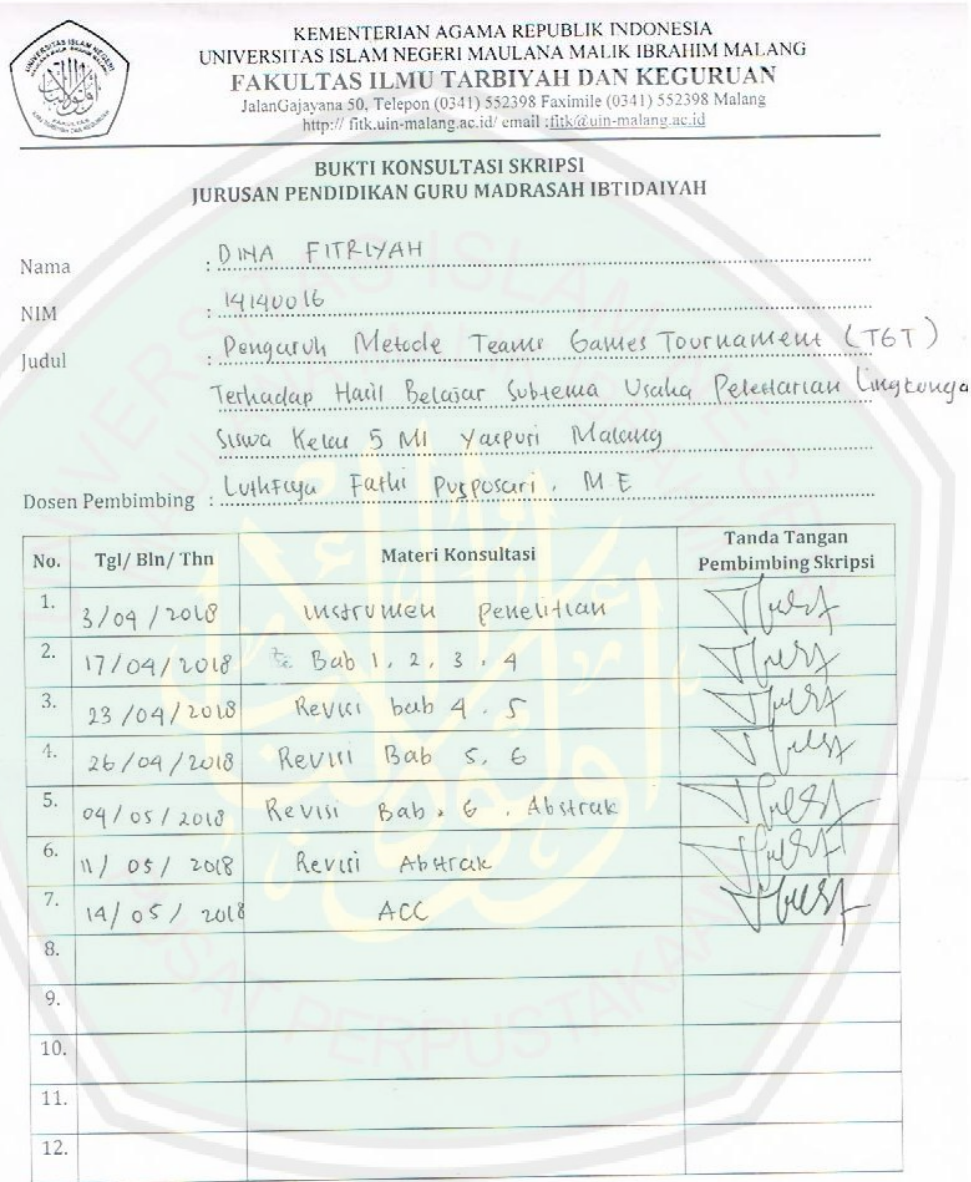 KEMENTERIAN AGAMA REPUBLIK INDONESIA
UNIVERSITAS ISLAM NEGERI MAULANA MALIK IBRAHIM MALANG
FAKULTAS ILMU TARBIYAH DAN KEGURUAN
JalanGajayana 50, Telepon (0341) 552398 Faximile (0341) 552398 Malang
http:// fitk.uin-malang.ac.id/ email :fitk@uin-malang.ac.id
BUKTI KONSULTASI SKRIPSI
JURUSAN PENDIDIKAN GURU MADRASAH IBTIDAIYAH
Nama : DINA FITRIYAH
NIM : 14140016
Judul : Pengaruh Metode Teams Games Tournament (TGT)
Terhadap Hasil Belajar Subtema Usaha Pelestarian Lingkunga
Siswa Kelas 5 MI Yaspuri Malang
Dosen Pembimbing : Luthfiya Fathi Pusposari, M E
No. Tgl/ Bln/ Thn Materi Konsultasi Tanda Tangan Pembimbing Skripsi
1. 3/04/2018 Instrumen Penelitian
2. 17/04/2018 Bab 1, 2, 3, 4
3. 23/04/2018 Revisi bab 4, 5
4. 26/04/2018 Revisi Bab 5, 6
5. 04/05/2018 Revisi Bab, 6, Abstrak
6. 11/ 05/ 2018 Revisi Abstrak
7. 14/ 05/ 2018 ACC
8.
9.
10.
11.
12.